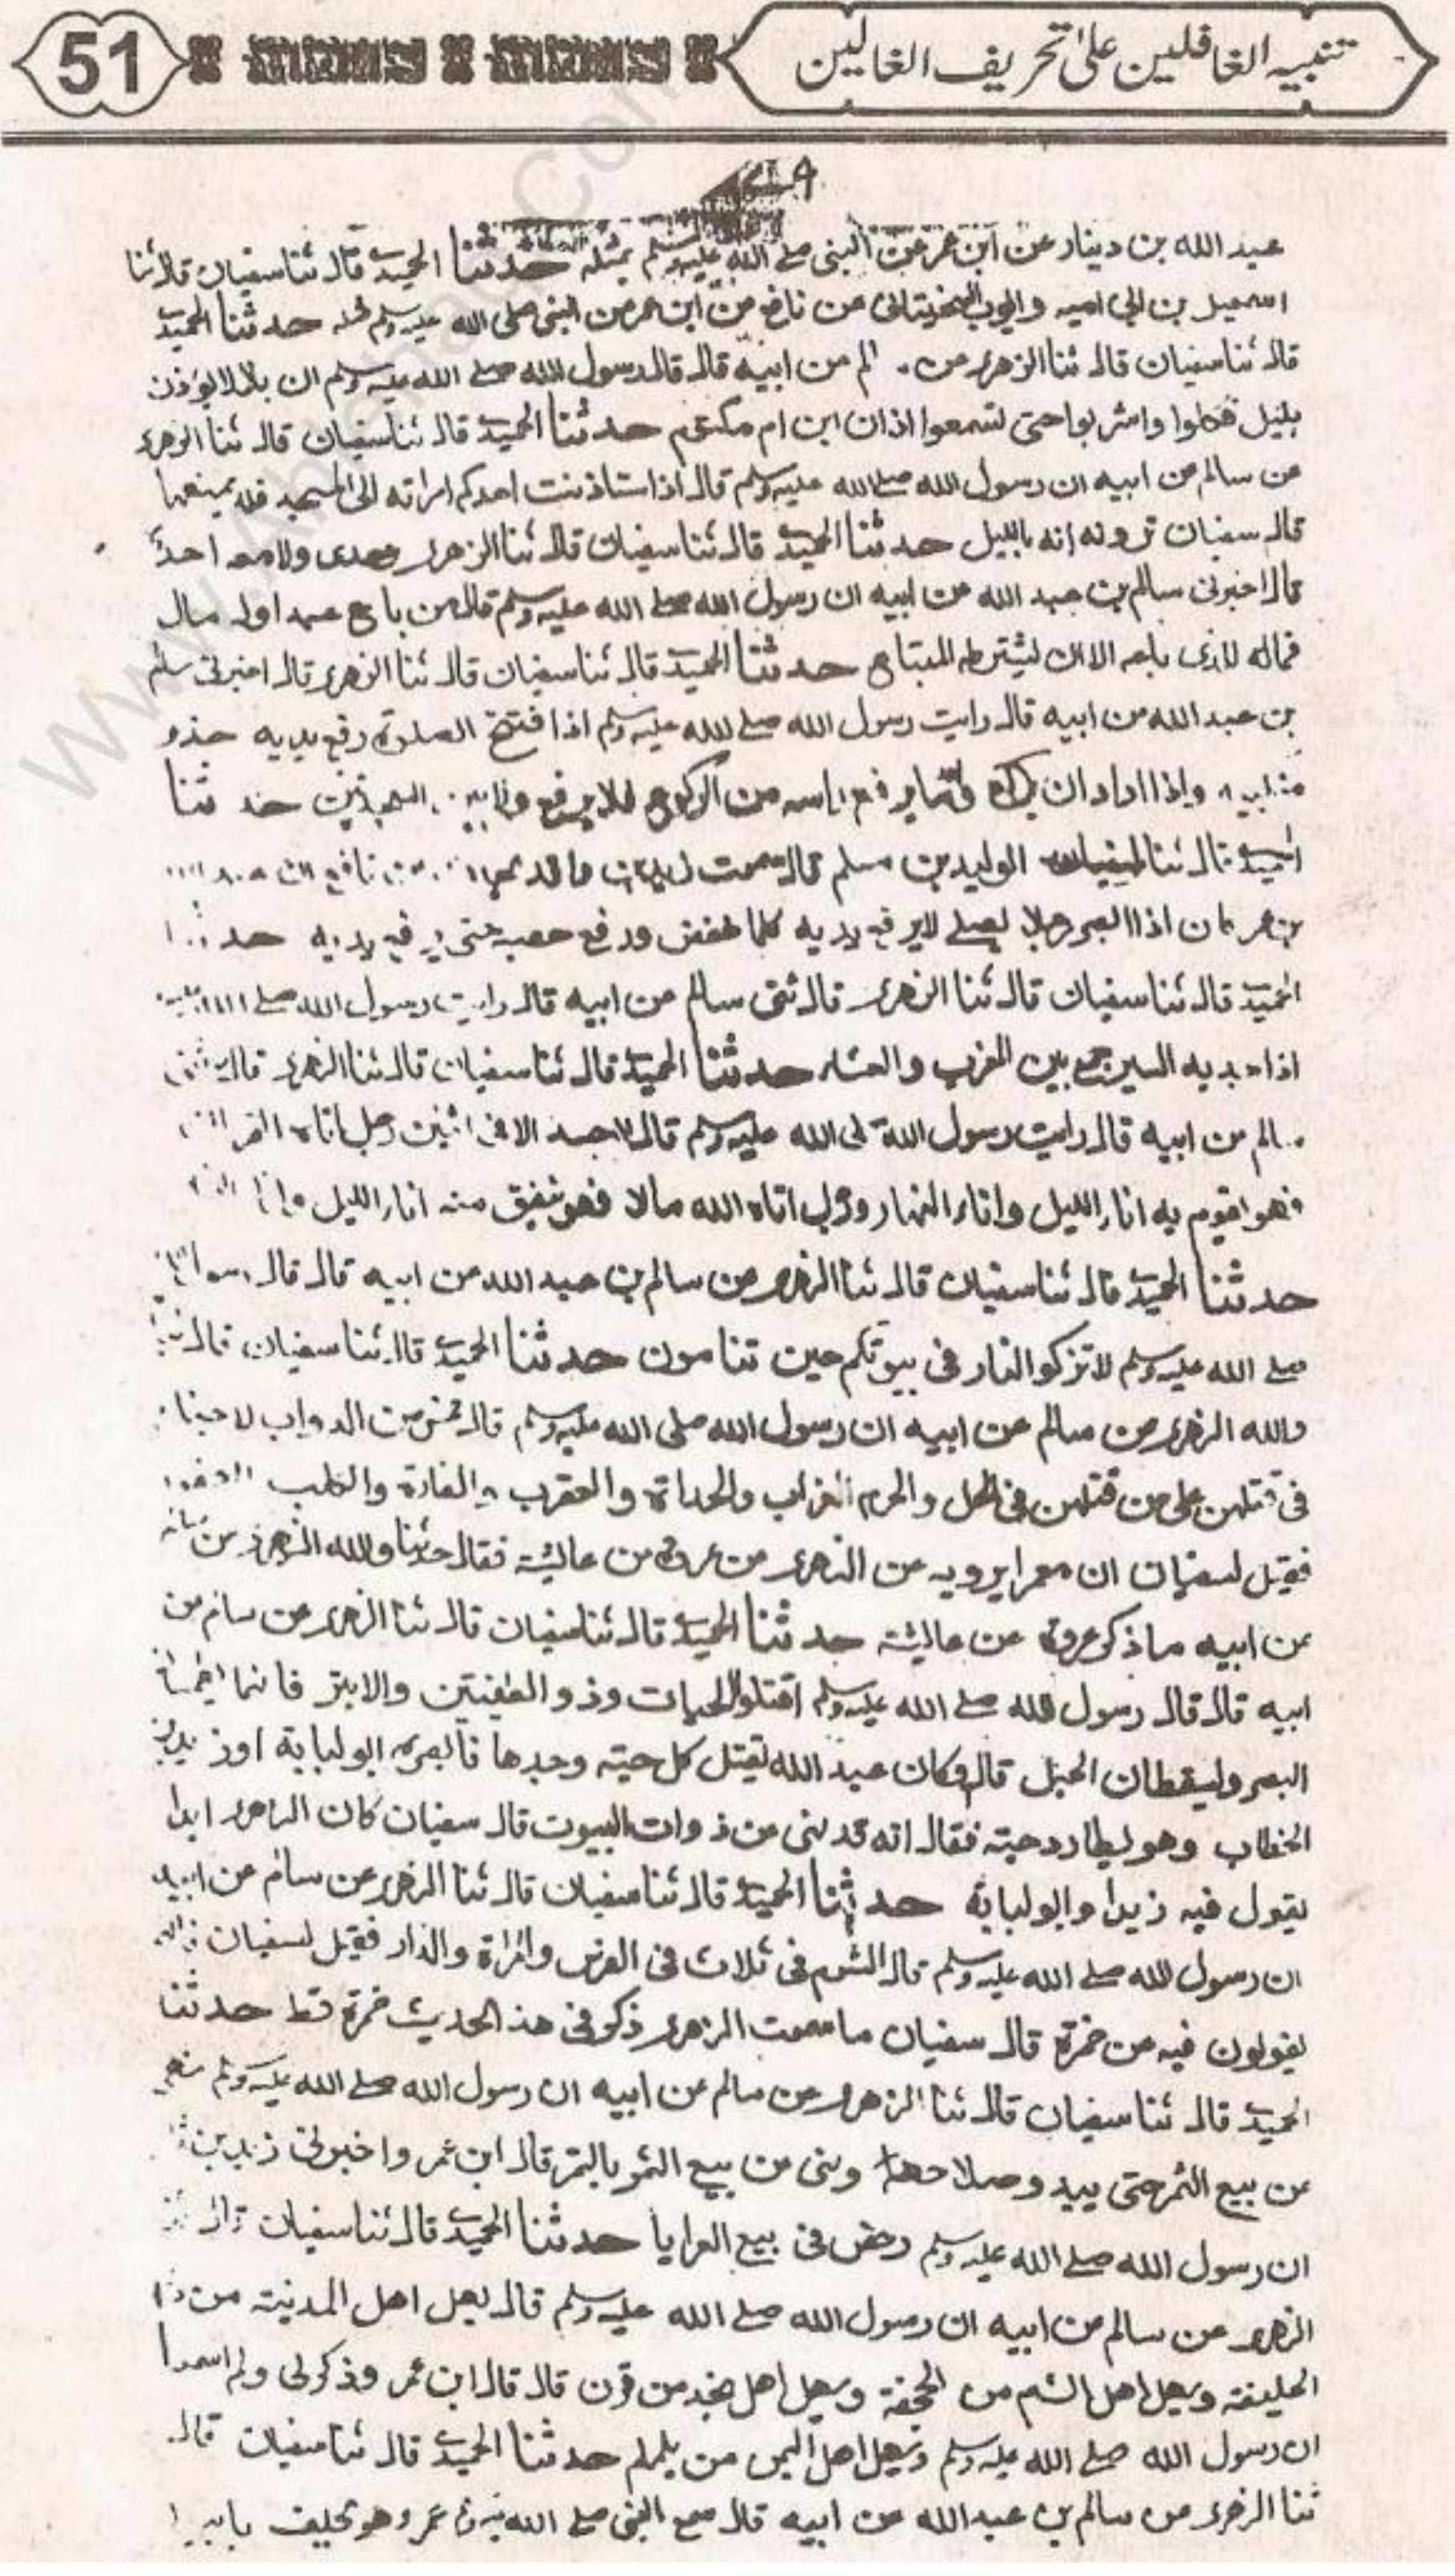 تنبيه الغافلين على تحريف الغالين
51
عبد الله بن دينار عن ابن عمر عن النبي صلى الله عليه وسلم بمثله حدثنا الحميدي قال ثنا سفيان قال ثنا
اسمعيل بن ابي اميه وايوب السختياني عن نافع عن ابن عمر عن النبي صلى الله عليه وسلم مثله حدثنا الحميدي
قال ثنا سفيان قال ثنا الزهري عن عن ابيه قال قال رسول الله صلى الله عليه وسلم ان بلالا يوذن
بليل فكلوا واشربوا حتى تسمعوا اذان ابن ام مكتوم حدثنا الحميدي قال ثنا سفيان قال ثنا الزهري
عن سالم عن ابيه ان رسول الله صلى الله عليه وسلم قال اذا استاذنت احدكم امراته الى المسجد فلا يمنعها
قال سفيان انه بالليل حدثنا الحميدي قال ثنا سفيان قال ثنا الزهري وحدي ولا معه احد
قال اخبرني سالم بن عبد الله عن ابيه ان رسول الله صلى الله عليه وسلم قال من باع عبدا وله مال
فماله للذي باعه الا ان يشترطه المبتاع حدثنا الحميدي قال ثنا سفيان قال ثنا الزهري قال اخبرني سالم
بن عبد الله عن ابيه قال رايت رسول الله صلى الله عليه وسلم اذا افتتح الصلوة رفع يديه حذو
منكبيه واذا اراد ان يركع وبعد ما يرفع راسه من الركوع فلا يرفع ولا بين السجدتين حدثنا
الحميدي قال ثنا الوليد بن مسلم قال سمعت زيد بن واقد يحدث عن نافع ان
بن عمر كان اذا ابصر رجلا يصلي لا يرفع يديه كلما خفض ورفع حصبه حتى يرفع يديه حدثنا
الحميدي قال ثنا سفيان قال ثنا الزهري قال ثنى سالم عن ابيه قال رايت رسول الله صلى الله عليه
اذا جد به السير جمع بين المغرب والعشاء حدثنا الحميدي قال ثنا سفيان قال ثنا الزهري قال ثنى
سالم عن ابيه قال رايت رسول الله صلى الله عليه وسلم قال لا حسد الا في اثنين رجل اتاه
فهو يقوم به اناء الليل واناء النهار ورجل اتاه الله مالا فهو ينفق منه اناء الليل واناء
حدثنا الحميدي قال ثنا سفيان قال ثنا الزهري عن سالم بن عبد الله عن ابيه قال قال رسول الله
صلى الله عليه وسلم لا تتركوا النار في بيوتكم حين تنامون حدثنا الحميدي قال ثنا سفيان قال ثنا
والله الزهري عن سالم عن ابيه ان رسول الله صلى الله عليه وسلم قال خمس من الدواب لا جناح
في قتلهن على من قتلهن في الحل والحرم الغراب والحداة والعقرب والفارة والكلب العقور
فقيل لسفيان ان معمرا يرويه عن الزهري عن عروة عن عائشة فقال حدثنا والله الزهري عن سالم
عن ابيه ما ذكر عروة عن عائشة حدثنا الحميدي قال ثنا سفيان قال ثنا الزهري عن سالم عن
ابيه قال قال رسول الله صلى الله عليه وسلم اقتلوا الحيات وذو الطفيتين والابتر فانهما يلتمسان
البصر ويسقطان الحبل قال وكان عبد الله يقتل كل حية وجدها فابصره ابو لبابة او زيد بن
الخطاب وهو يطارد حية فقال انه قد نهى عن ذوات البيوت قال سفيان كان الزهري ابدا
يقول فيه زيدا وابو لبابة حدثنا الحميدي قال ثنا سفيان قال ثنا الزهري عن سالم عن ابيه
ان رسول الله صلى الله عليه وسلم قال الشوم في ثلاث في الفرس والمراة والدار فقيل لسفيان
يقولون فيه عن حمزة قال سفيان ما سمعت الزهري ذكر في هذ الحديث حمزة قط حدثنا
الحميدي قال ثنا سفيان قال ثنا الزهري عن سالم عن ابيه ان رسول الله صلى الله عليه وسلم نهى
عن بيع الثمر حتى يبدو صلاحها ونهى عن بيع الثمر بالتمر قال ابن عمر واخبرني زيد بن
ان رسول الله صلى الله عليه وسلم رخص في بيع العرايا حدثنا الحميدي قال ثنا سفيان قال ثنا
الزهري عن سالم عن ابيه ان رسول الله صلى الله عليه وسلم قال يهل اهل المدينة من ذا
الحليفة ويهل اهل الشام من الجحفة ويهل اهل نجد من قرن قال قال ابن عمر وذكر لي ولم اسمع
ان رسول الله صلى الله عليه وسلم ويهل اهل اليمن من يلملم حدثنا الحميدي قال ثنا سفيان قال
ثنا الزهري عن سالم بن عبد الله عن ابيه قال سمع النبي صلى الله عليه وسلم عمر وهو يحلف بابيه